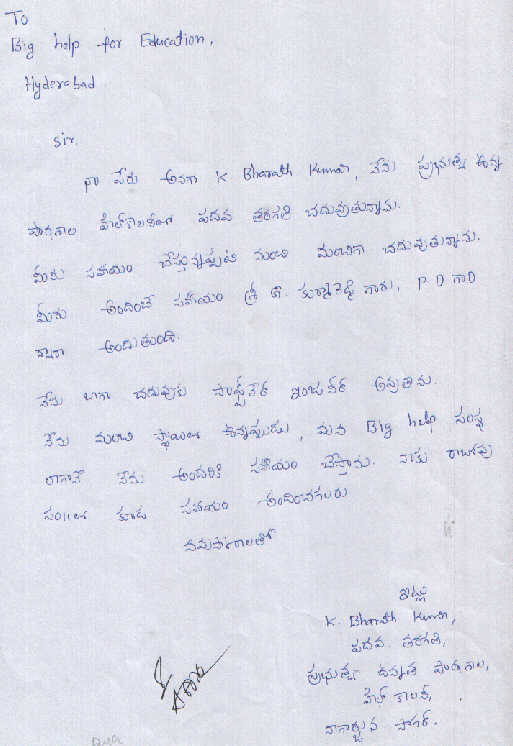 To
Big help for Education,
Hyderabad
Sir.
నా పేరు అనగా K Bharath Kumar, నేను ప్రభుత్వ ఉన్నత
పాఠశాల హిల్‌కాలనిలో పదవ తరగతి చదువుతున్నాను.
మీరు సహాయం చేస్తున్నప్పటి నుంచి మంచిగా చదువుతున్నాను.
మీరు అందించే సహాయం శ్రీ కృష్ణారెడ్డి గారు, P D గారి
ద్వారా అందుతుంది.
నేను బాగా చదువుకు సాఫ్ట్‌వేర్ ఇంజనీర్ అవుతాను.
నేను మంచి స్థాయిలో ఉన్నప్పుడు, మన Big help సంస్థ
లాగానే నేను అందరికి సహాయం చేస్తాను. నాకు రాబోవు
సం॥లో కూడ సహాయం అందించగలరు
నమస్కారాలతో
ఇట్లు
K. Bharath Kumar,
పదవ తరగతి,
ప్రభుత్వ ఉన్నత పాఠశాల,
హిల్ కాలని,
నాగార్జున సాగర్.